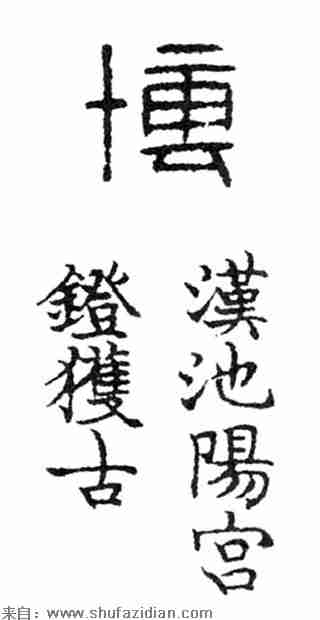 博
漢池陽宮
鐙獲古
来自：www.shufazidian.com